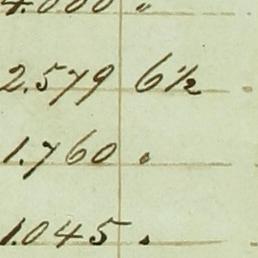 4.000 "
2.579 6½
1.760 "
1.045 "